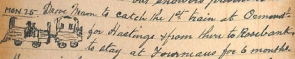 MON 25. Drove Mam to catch the 1st train at Ormond-
for Hastings & from there to Rosebank
to stay at Fourneaus for 6 months.